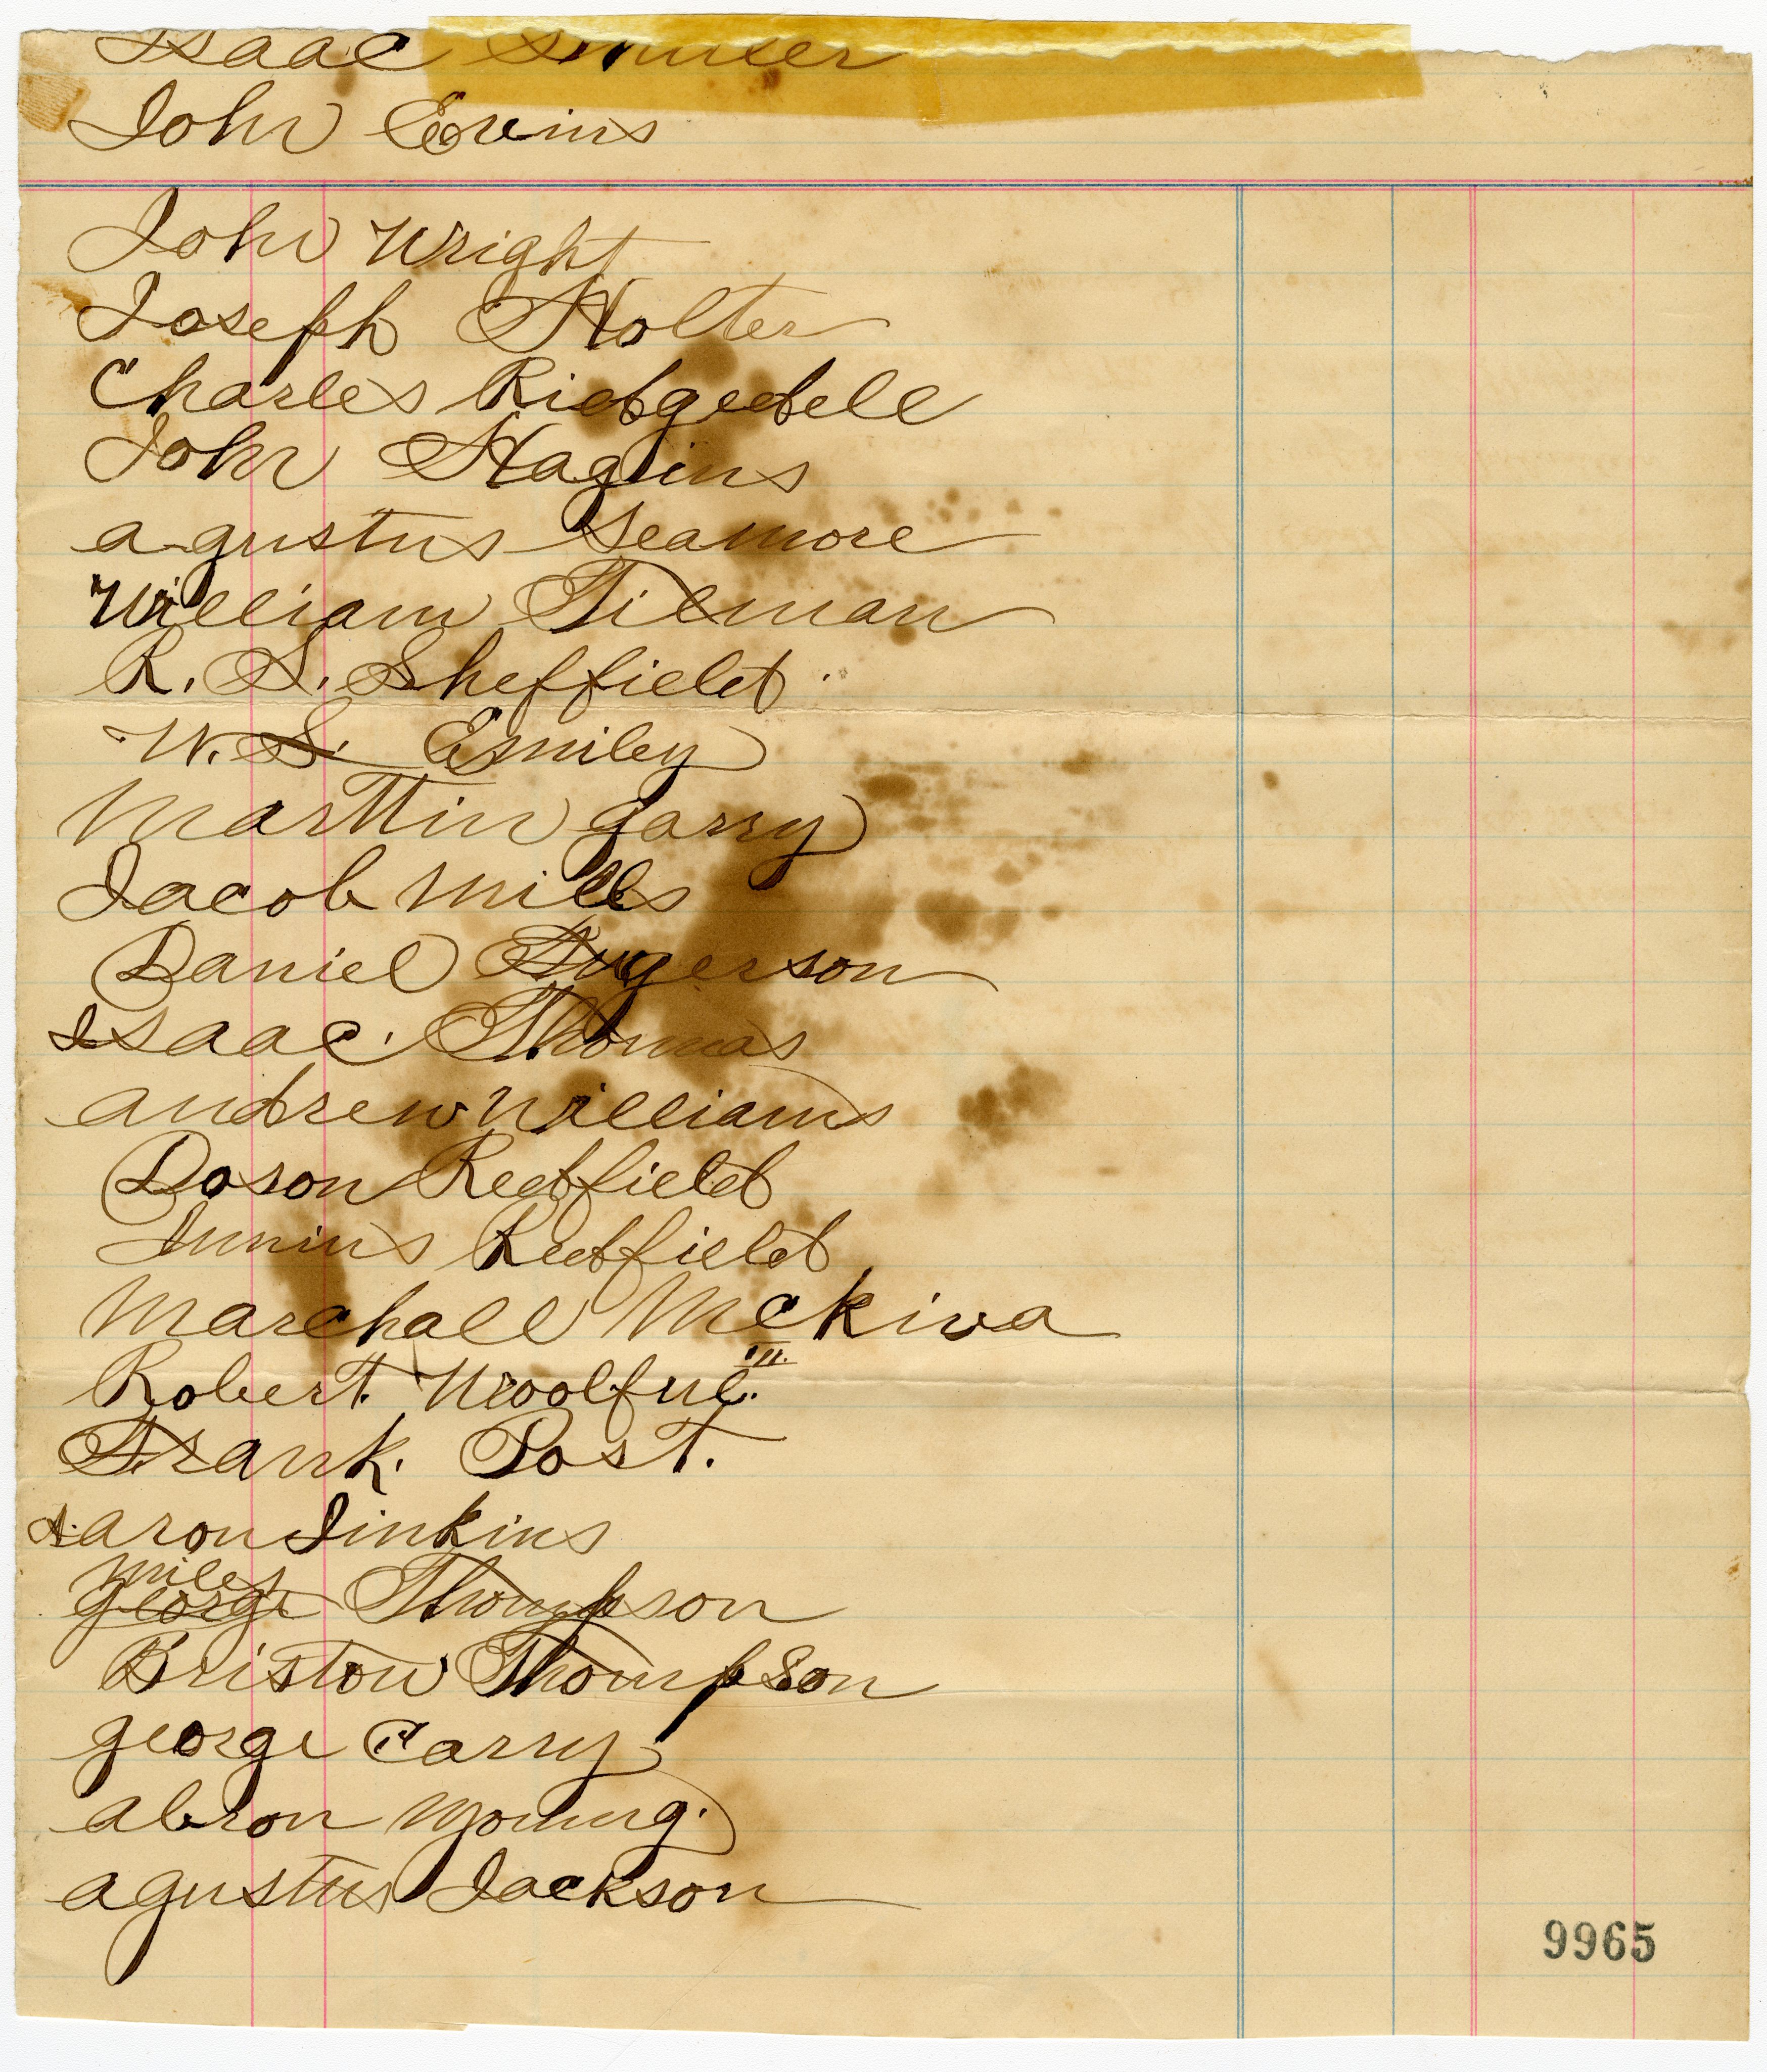 Isaac
John Evins
John Wright
Joseph Holter
Charles Ridgedell
John Hagins
agustus Seamore
William Tilman
R. S. Sheffield
W. S. Emiley
Marttin garry
Jacob Mills
Daniel
Isaac. Thomas
andrew Williams
Doson Redfield
Junius Redfield
Marchall Mckiva
Robert. Woolful.
Frank. Post.
Aaron Jinkins
miles
george Thompson
Bristow Thompson
george Carry
abron Young.
agustus Jackson
9965